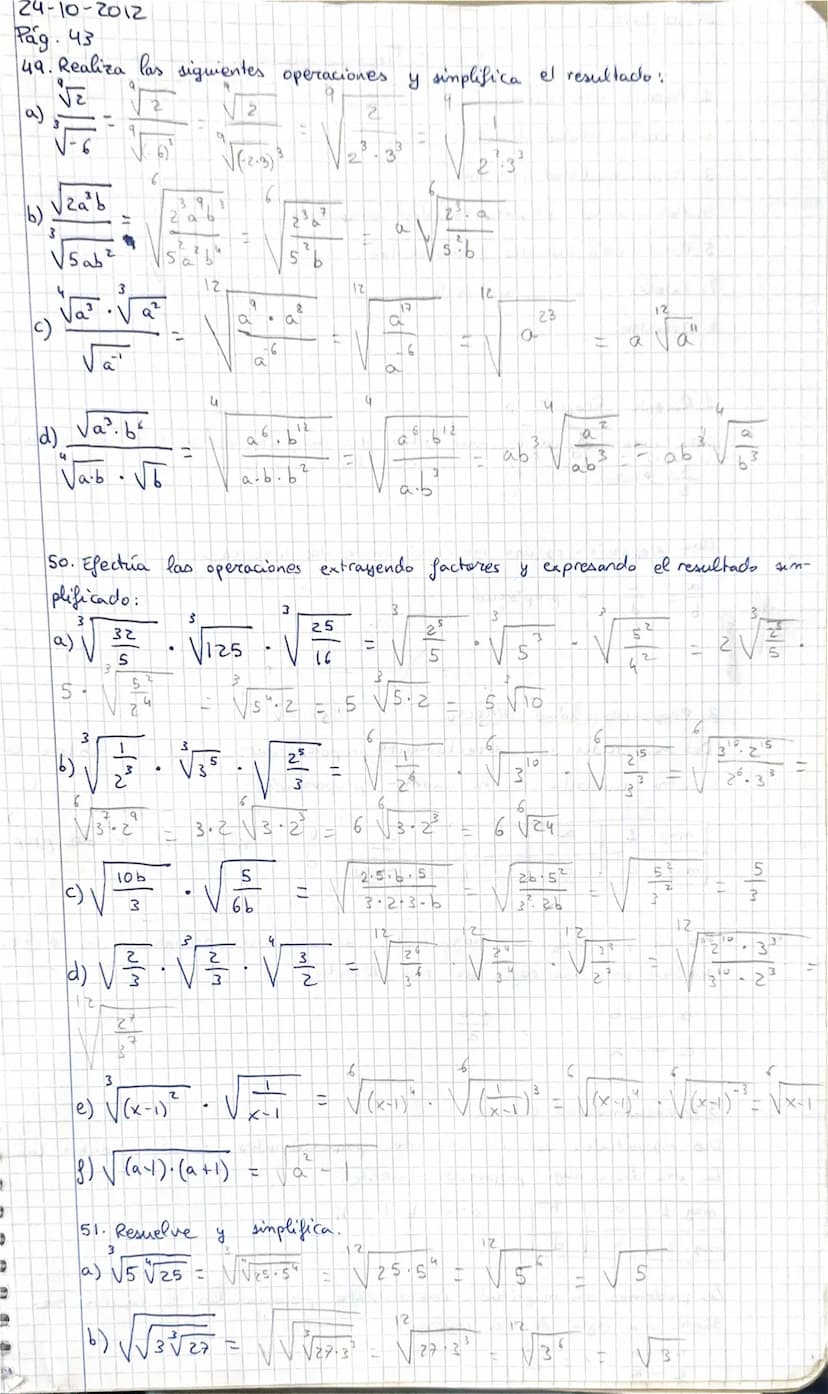 24-10-2012
Pág. 43
49. Realiza las siguientes operaciones y simplifica el resultado:
a) ⁹√2 / ³√-6 = ⁹√2 / ⁹√(-6)³ = ⁹√2 / ⁹√(-2·3)³ = ⁹√(2 / 2³·3³) = ⁹√(1 / 2²·3³)
b) √2a³b / ³√5ab² = ⁶√(2³a⁹b³ / 5²a²b⁴) = ⁶√(2³a⁷ / 5²b) = a ⁶√(2³·a / 5²·b)
c) ⁴√a³ · ³√a² / √a⁻¹ = ¹²√(a⁹·a⁸ / a⁻⁶) = ¹²√(a¹⁷ / a⁻⁶) = ¹²√a²³ = a ¹²√a¹¹
d) √a³·b⁶ / ⁴√a·b · √b = ⁴√(a⁶·b¹² / a·b·b²) = ⁴√(a⁶·b¹² / a·b³) = ab³ ⁴√(a² / ab³) = ab³ ⁴√(a / b³)
50. Efectúa las operaciones extrayendo factores y expresando el resultado sim-
plificado:
a) ³√(32/5) · ³√125 · ³√(25/16) = ³√(2⁵/5) · ³√5³ · ³√(5²/4²) = 2 ³√(2²/5) ·
5 · ³√(5²/2⁴) = ³√5⁴·2 = 5 ³√5·2 = 5 ³√10
b) ³√(1/2³) · ³√3⁵ · √(2⁵/3) = ⁶√(1/2⁶) · ⁶√3¹⁰ · ⁶√(2¹⁵/3³) = ⁶√(3¹⁰·2¹⁵ / 2⁶·3³) =
⁶√3⁷·2⁹ = 3·2 ⁶√3·2³ = 6 ⁶√3·2³ = 6 ⁶√24
c) √(10b/3) · √(5/6b) = √(2·5·b·5 / 3·2·3·b) = √(2b·5² / 3²·2b) = √(5²/3²) = 5/3
d) √(2/3) · ³√(2/3) · ⁴√(3/2) = ¹²√(2⁶/3⁶) · ¹²√(2⁴/3⁴) · ¹²√(3³/2³) = ¹²√(2¹⁰·3³ / 3¹⁰·2³) =
¹²√(2⁷/3⁷)
e) ³√(x-1)² · √(1/x-1) = ⁶√(x-1)⁴ · ⁶√(1/x-1)³ = ⁶√(x-1)⁴ · ⁶√(x-1)⁻³ = ⁶√x-1
f) √(a-1)·(a+1) = √a²-1
51. Resuelve y simplifica.
a) ³√5⁴√25 = ³√⁴√25·5⁴ = ¹²√25·5⁴ = ¹²√5⁶ = √5
b) √√3³√27 = √√³√27·3³ = ¹²√27·3³ = ¹²√3⁶ = √3